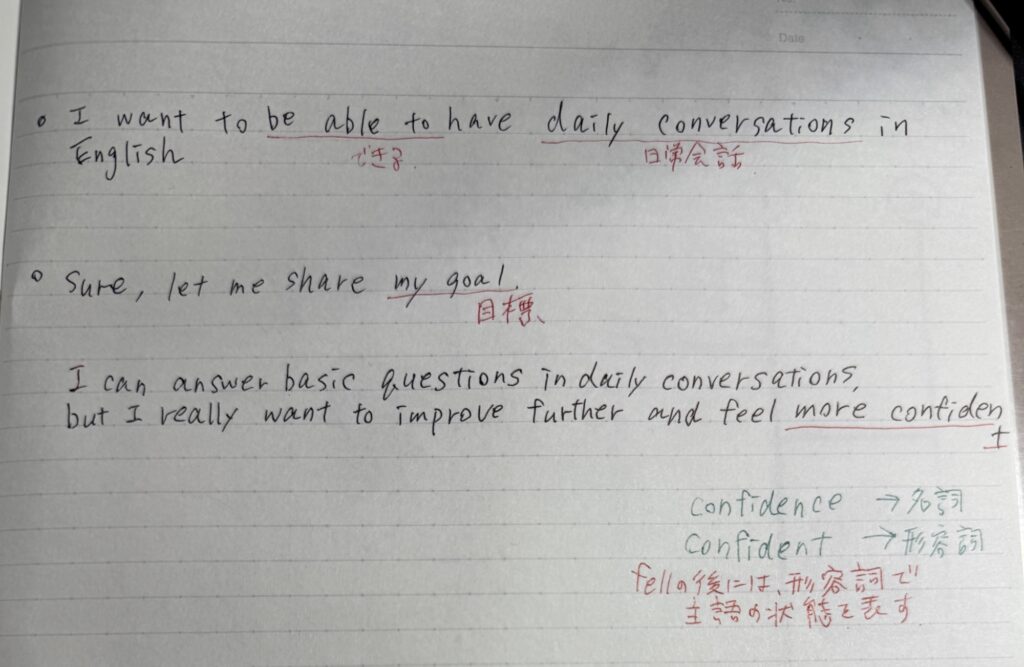 Date
○ I want to be able to have daily conversations in
English
できる 日常会話
○ Sure, let me share my goal.
目標、
I can answer basic questions in daily conversations,
but I really want to improve further and feel more confiden
t
confidence → 名詞
confident → 形容詞
fellの後には、形容詞で
主語の状態を表す